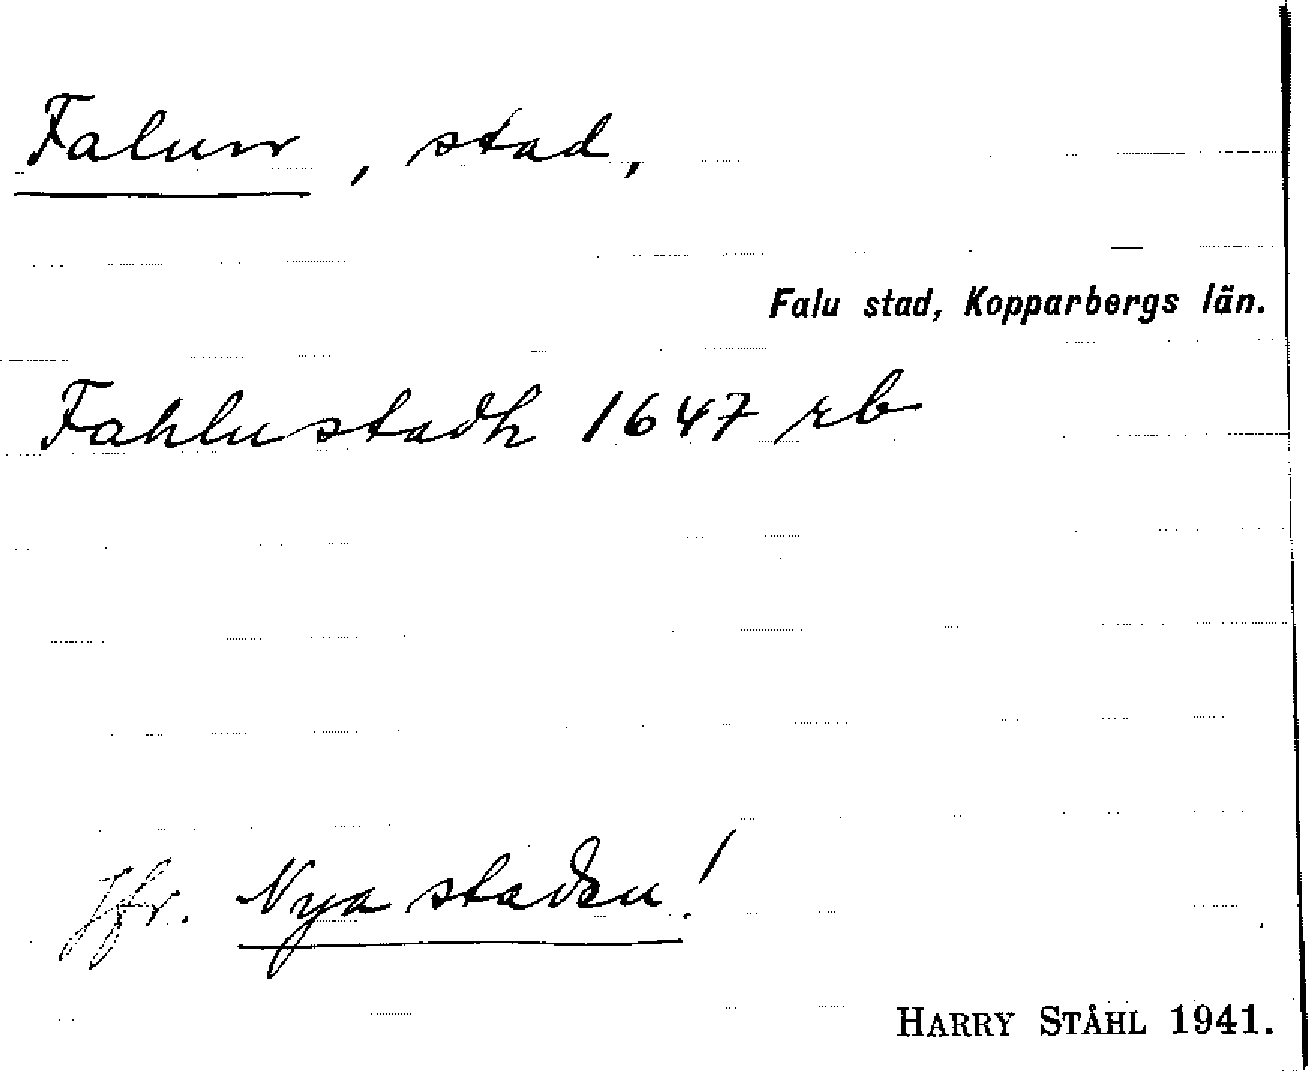 Falun, stad,
Falu stad, Kopparbergs län.
Fahlustadh 1647 rb
Jfr. Nya staden!
HARRY STÅHL 1941.